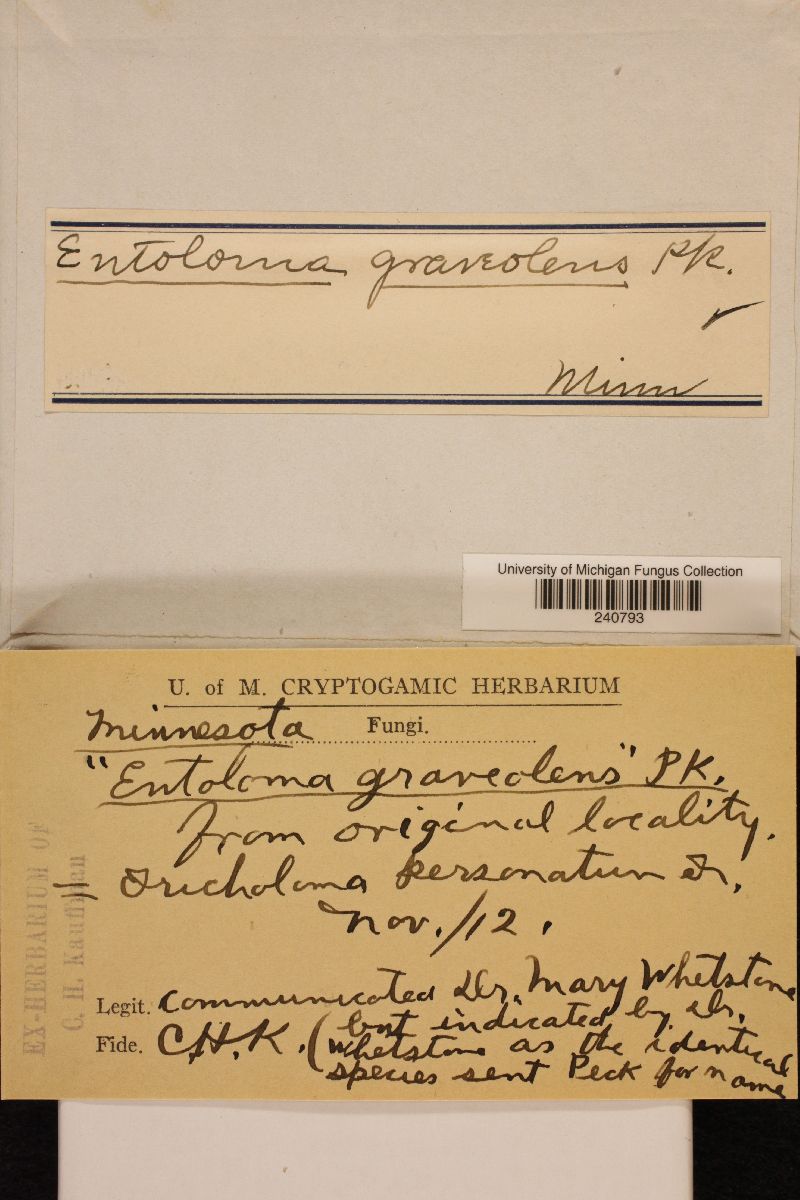 Entoloma graveolens Pk.
Minn
University of Michigan Fungus Collection
240793
U. of M. CRYPTOGAMIC HERBARIUM
Minnesota Fungi.
"Entoloma graveolens" PK.
from original locality.
= Tricholoma personatum Fr.
Nov./12.
EX-HERBARIUM OF
C. H. Kauffman
Legit. communicated Dr. Mary Whetstone
Fide. C.H.K. (but indicated by Dr.
Whetstone as the identical
species sent Peck for name